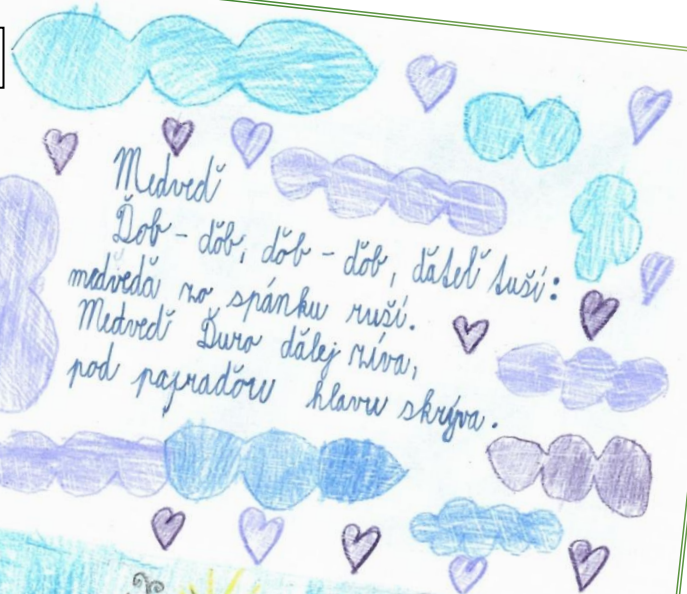 Medveď
Ďob - ďob, ďob - ďob, ďateľ tuší:
medveďa zo spánku ruší.
Medveď Ďuro ďalej zíva,
pod papraďou hlavu skrýva.